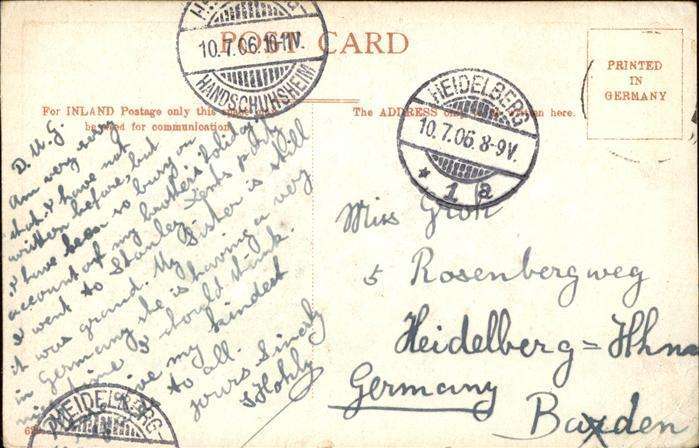 POST CARD
PRINTED
IN
GERMANY
For INLAND Postage only this
be used for communication
The ADDRESS only to be written here.
HANDSCHUHSHEIM
10.7.06.10-11V.
HEIDELBERG
10.7.06.8-9V.
* 1 a
D. M. G.
Am very sorry
that I have not
written before, but
I have been so busy on
account of my brothers holiday
I went to Stanley
it was grand. My Sister is still
in Germany she is having a very
nice time I should think.
my kindest
to all.
Yours Sincerely
Miss Groh
5 Rosenbergweg
Heidelberg = Hhn
Germany
Baden
HEIDELBERG